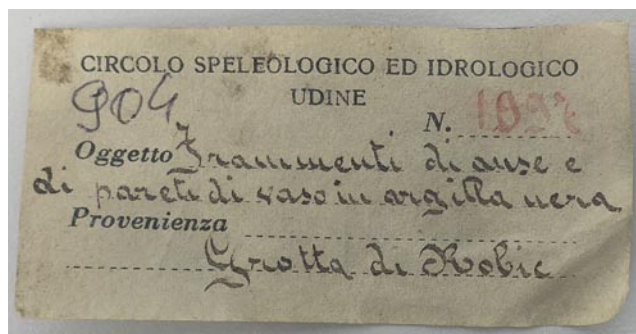 CIRCOLO SPELEOLOGICO ED IDROLOGICO
904 UDINE
N. 1097
Oggetto Frammenti di anse e
di pareti di vaso in argilla nera
Provenienza
Grotta di Robic